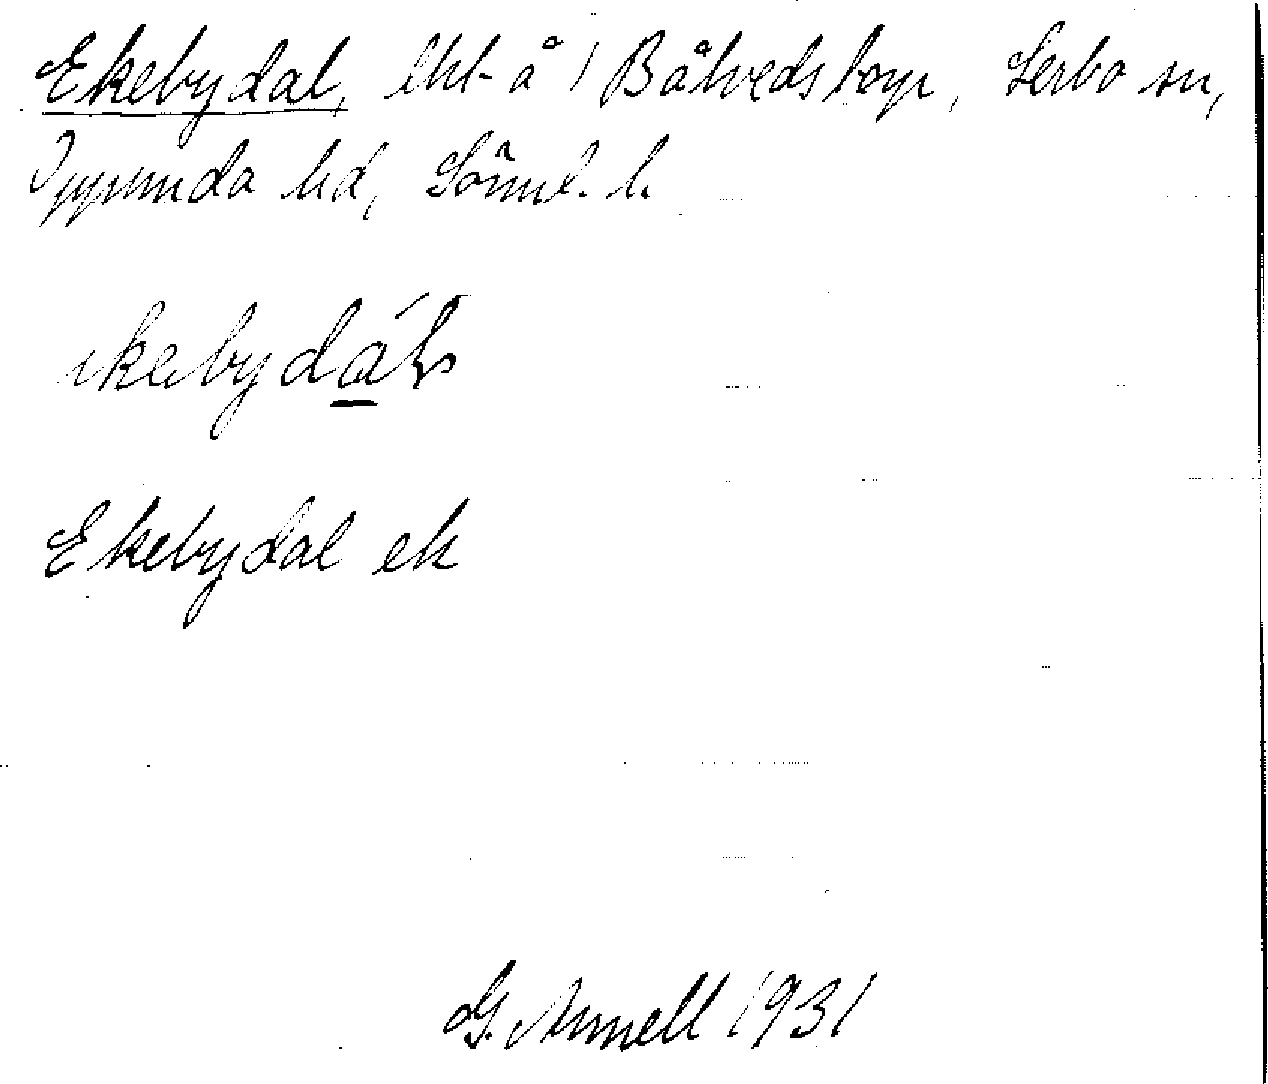 Ekebydal, lht å 1 Båtvedstorp, Lerbo sn,
Oppunda hd, Söml. l.
ekebydál
Ekebydal ek
G. Annell 1931